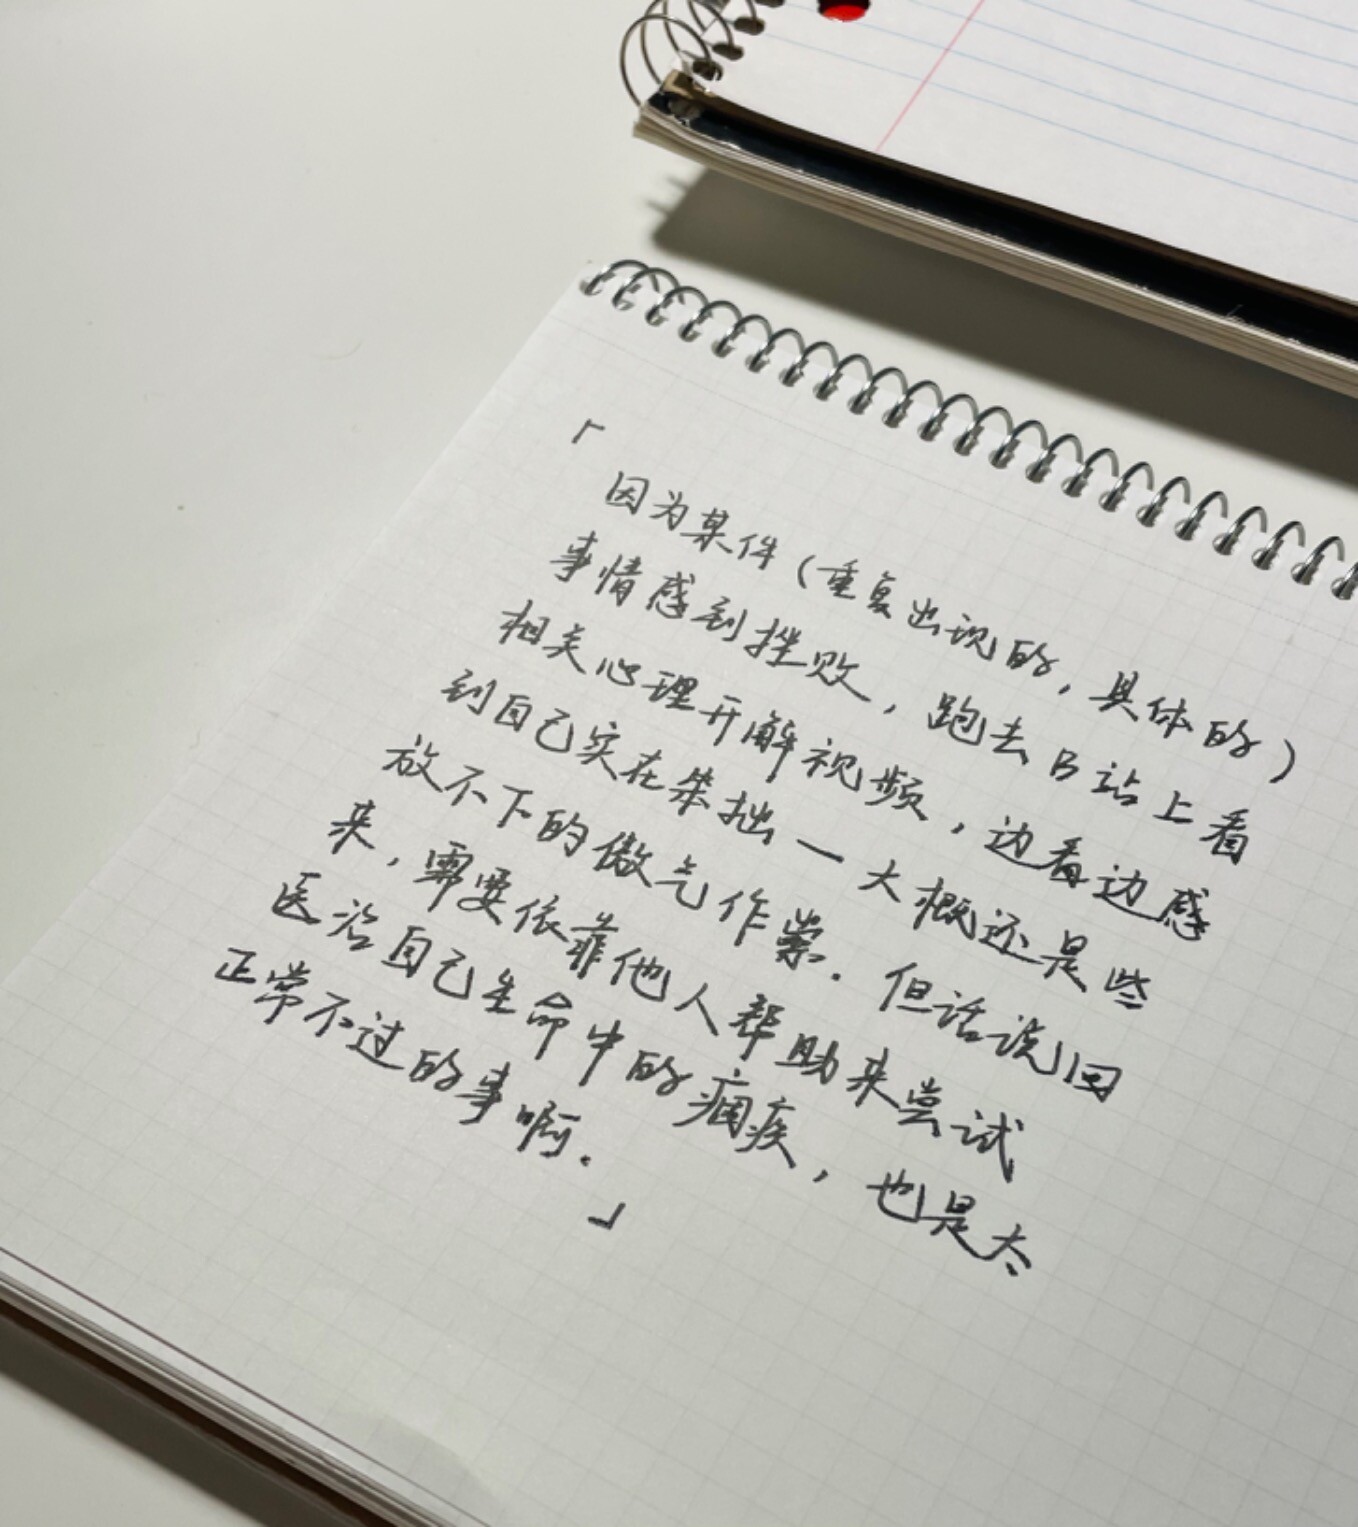 「
因为某件（重复出现的，具体的）
事情感到挫败，跑去B站上看
相关心理开解视频，边看边感
到自己实在笨拙一大概还是些
放不下的傲气作祟．但话说回
来，需要依靠他人帮助来尝试
医治自己生命中的痼疾，也是太
正常不过的事啊．
」